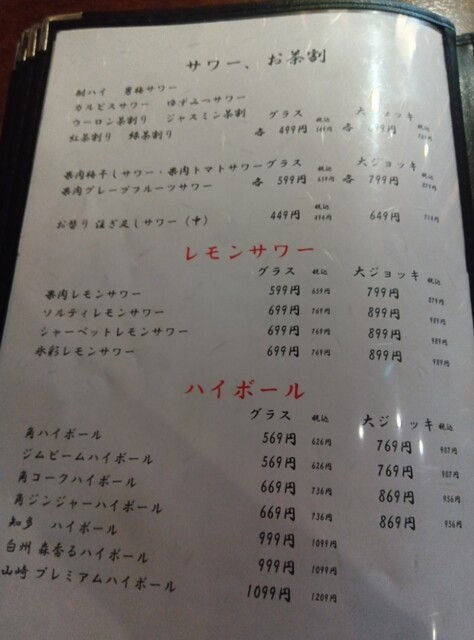 サワー、お茶割
酎ハイ 男梅サワー
カルピスサワー ゆずみつサワー
ウーロン茶割り ジャスミン茶割 グラス 税込 大ジョッキ 税込
紅茶割り 緑茶割り 各 499円 各
果肉梅干しサワー・果肉トマトサワー グラス 税込 大ジョッキ 税込
果肉グレープフルーツサワー 各 599円 659円 各 799円 879円
お替り 注ぎ足しサワー（中） 449円 494円 649円 714円
レモンサワー
グラス 税込 大ジョッキ 税込
果肉レモンサワー 599円 659円 799円 879円
ソルティレモンサワー 699円 769円 899円 989円
シャーベットレモンサワー 699円 769円 899円 989円
氷彩レモンサワー 699円 769円 899円 989円
ハイボール
グラス 税込 大ジョッキ 税込
角ハイボール 569円 626円 769円 907円
ジムビームハイボール 569円 626円 769円 907円
角コークハイボール 669円 736円 869円 956円
角ジンジャーハイボール 669円 736円 869円 956円
知多 ハイボール 999円 1099円
白州 森香るハイボール 999円 1099円
山崎 プレミアムハイボール 1099円 1209円